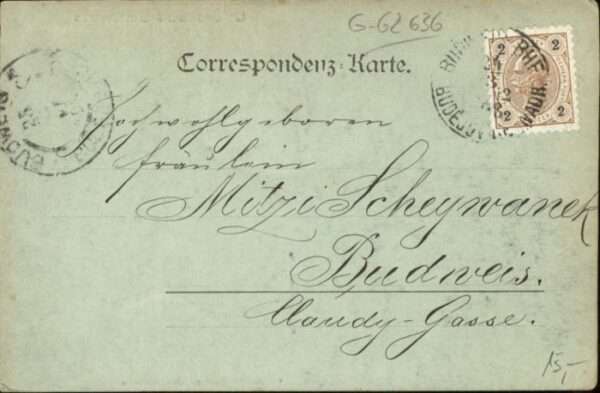 G-62636
Correspondenz-Karte.
2 2
2 2
BUDWEIS
Hochwohlgeboren
Fräulein
Mitzi Scheywanek
Budweis.
Claudy-Gasse.
15,-